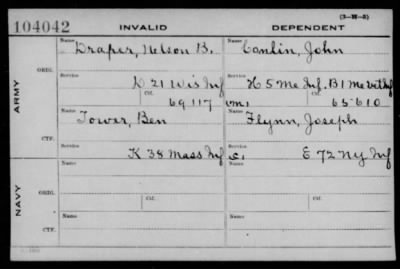 (3-H-5)
104042 INVALID DEPENDENT
Name Name
Draper, Nelson B. Conlin, John
ORIG.
Service Service
D 21 Wis Inf H 5 Me Inf. B1 Me Vet Inf
Ctf. Ctf.
69117 65610
ARMY
Name Name
Tower, Ben Flynn, Joseph
CTF.
Service Service
K 38 Mass Inf E 72 NY Inf
Name Name
ORIG.
Service Service
Ctf. Ctf.
NAVY
Name Name
CTF.
Service Service